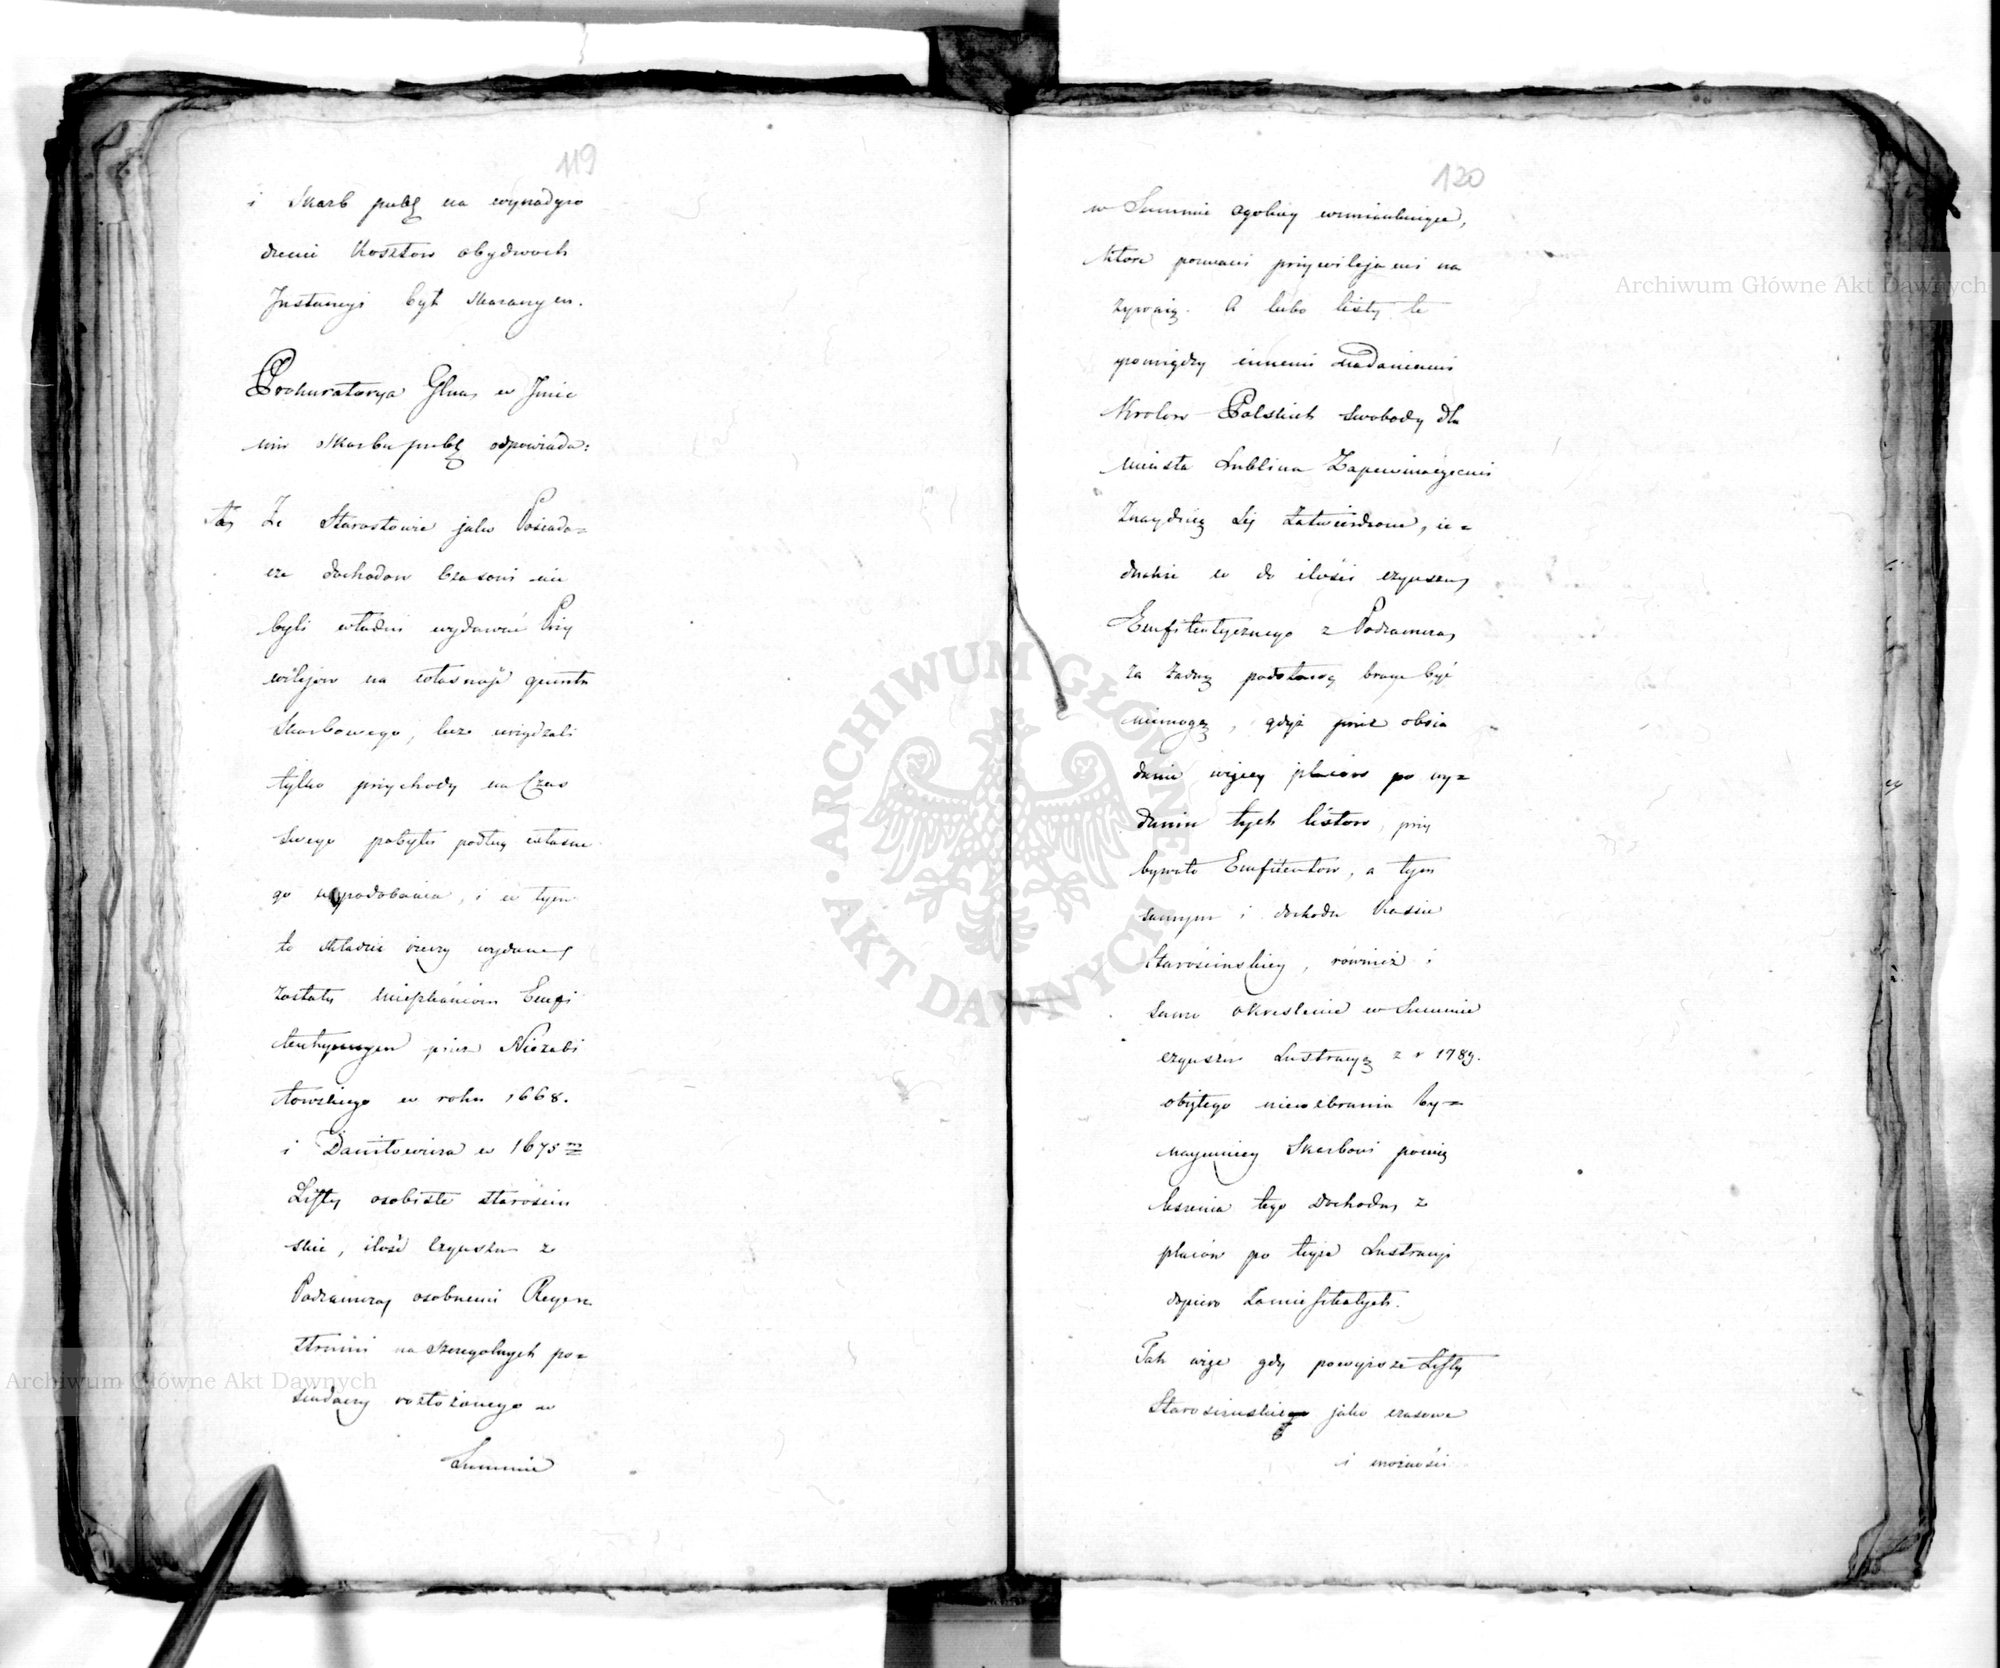 119
i Skarb publ na wynadgro
dzenie Kosztow obydwoch
Instancyi był skazanym.
Prokuratorya Glna, w Imie
niu Skarbu publ odpowiada:
Że Starostowie jako Posiada=
cze dochodow Czasowi nie
byli władni wydawać Przy
wilejow na własność gruntu
Skarbowego, lecz urządzali
tylko przychody na Czas
swego pobytu podług własne
go upodobania, i w tym
to składzie rzeczy wydane,
zostały Mieszkańcom Emfi
teutycznym przez Niezabi
towskiego w roku 1668.
i Daniłowicza w 1675 m
Listy osobiste starościn
skie, ilość Czynszu z
Podzamcza, osobnemi Rejen
strami na szczegolnych po=
siadaczy rozłożonego w
Summie
120
w Summie ogolney wymieniaiące,
które pozwani przywilejami na
zywaią. A lubo listy te
pomiędzy innemi nadaniami
Krolow Polskich swobody dla
miasta Lublina Zapewniaiącemi
Znayduią się Zatwierdzone, ie=
dnakże co do ilości czynszu,
Emfiteutycznego z Podzamcza,
za żadną podstawę brane być
niemogą, gdyż przez obsia
danie więcey placow po wy=
daniu tych listow, przy
bywało Emfiteutow, a tym
samym i dochodu Kassie
Starościnskiey, również i
samo określenie w Summie
czynszu Lustracyą z r 1789.
obiętego niewzbrania by=
naymniey Skarbowi powię
kszenia tego dochodu, z
placów po teyże Lustracyi
dopiero Zamieszkałych.
Tak więc gdy powyższe Listy
Starościnskie jako czasowe
i możności
Archiwum Główne Akt Dawnych
Archiwum Główne Akt Dawnych
ARCHIWUM GŁÓWNE AKT DAWNYCH